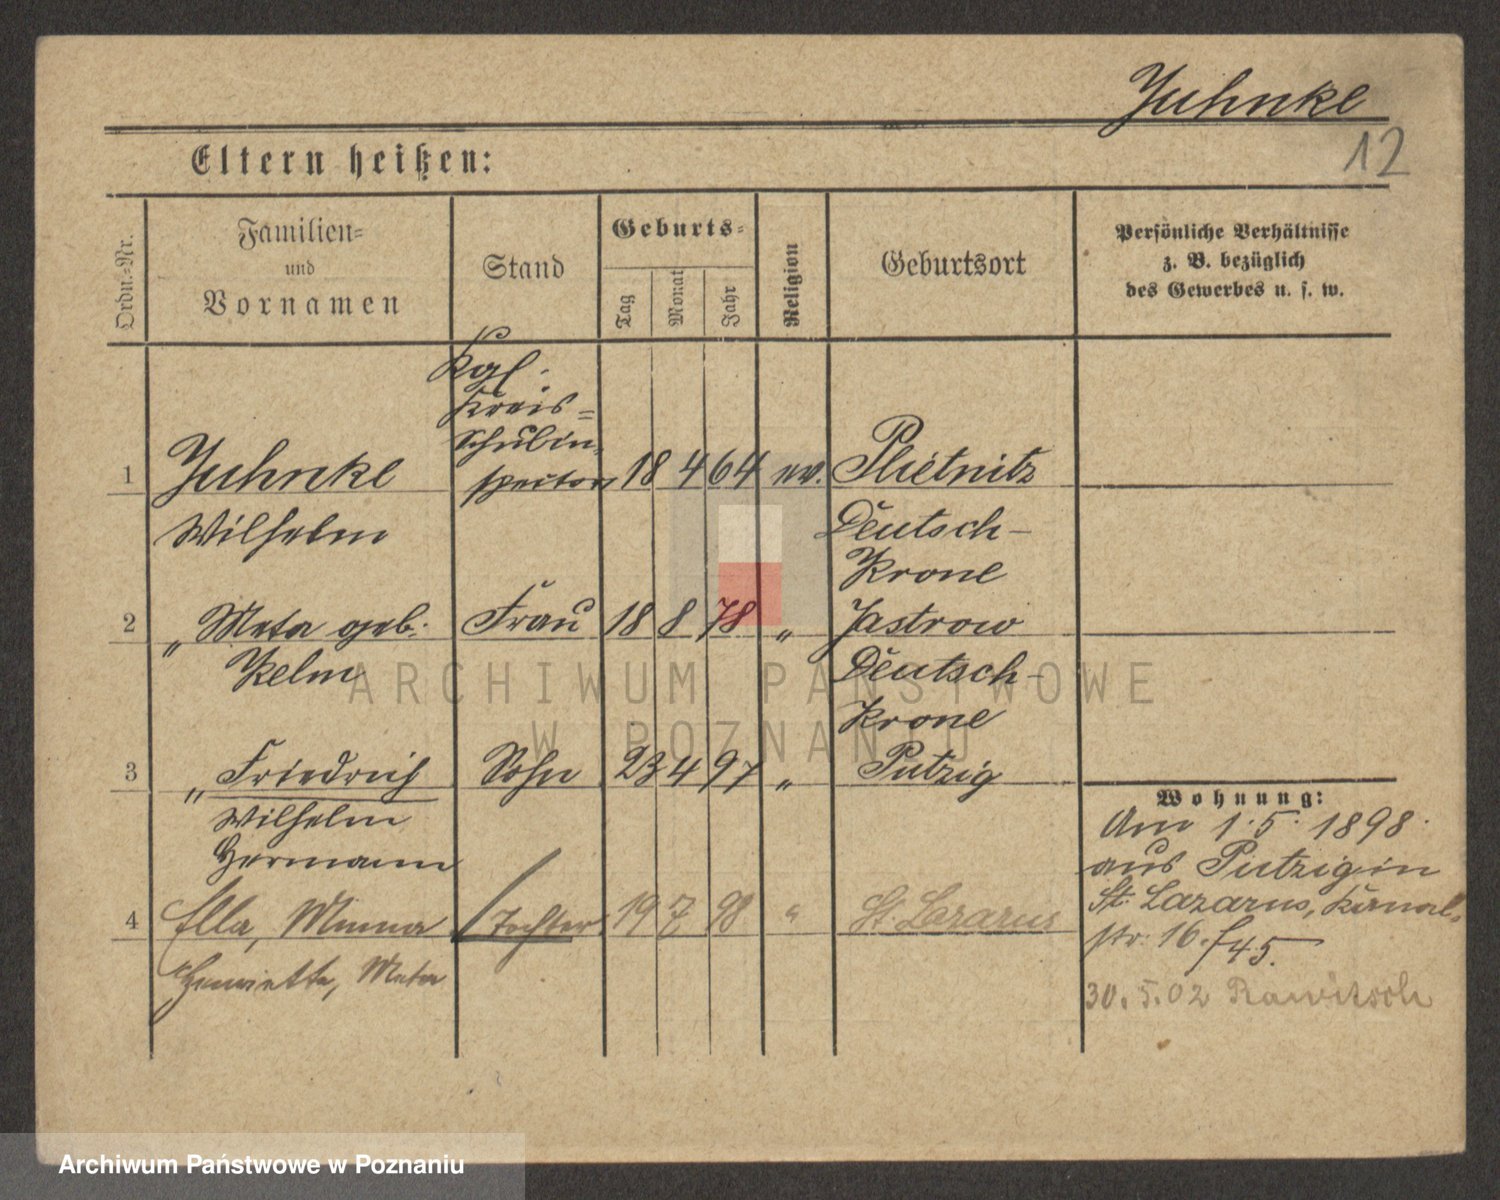 Juhnke
12
Eltern heißen:
Ordn.=Nr.
Familien=
und
Vornamen
Stand
Geburts=
Tag
Monat
Jahr
Religion
Geburtsort
Persönliche Verhältnisse
z. B. bezüglich
des Gewerbes u. s. w.
Kgl.
Kreis=
Schulin-
1 Juhnke spector 18 4 64 ev. Plietnitz
Wilhelm Deutsch-
Krone
2 " Meta geb. Frau 18 8 78 " Jastrow
Kelm Deutsch-
Krone
3 " Friedrich Sohn 23 4 97 " Putzig
Wilhelm
Hermann
4 Ella, Minna Tochter 19 7 98 " St. Lazarus
Henriette, Meta
Wohnung:
Am 1.5.1898.
aus Putzig in
St. Lazarus, Kanal-
str. 16. f 45.
30.5.02 Rawitsch
ARCHIWUM PAŃSTWOWE
W POZNANIU
Archiwum Państwowe w Poznaniu